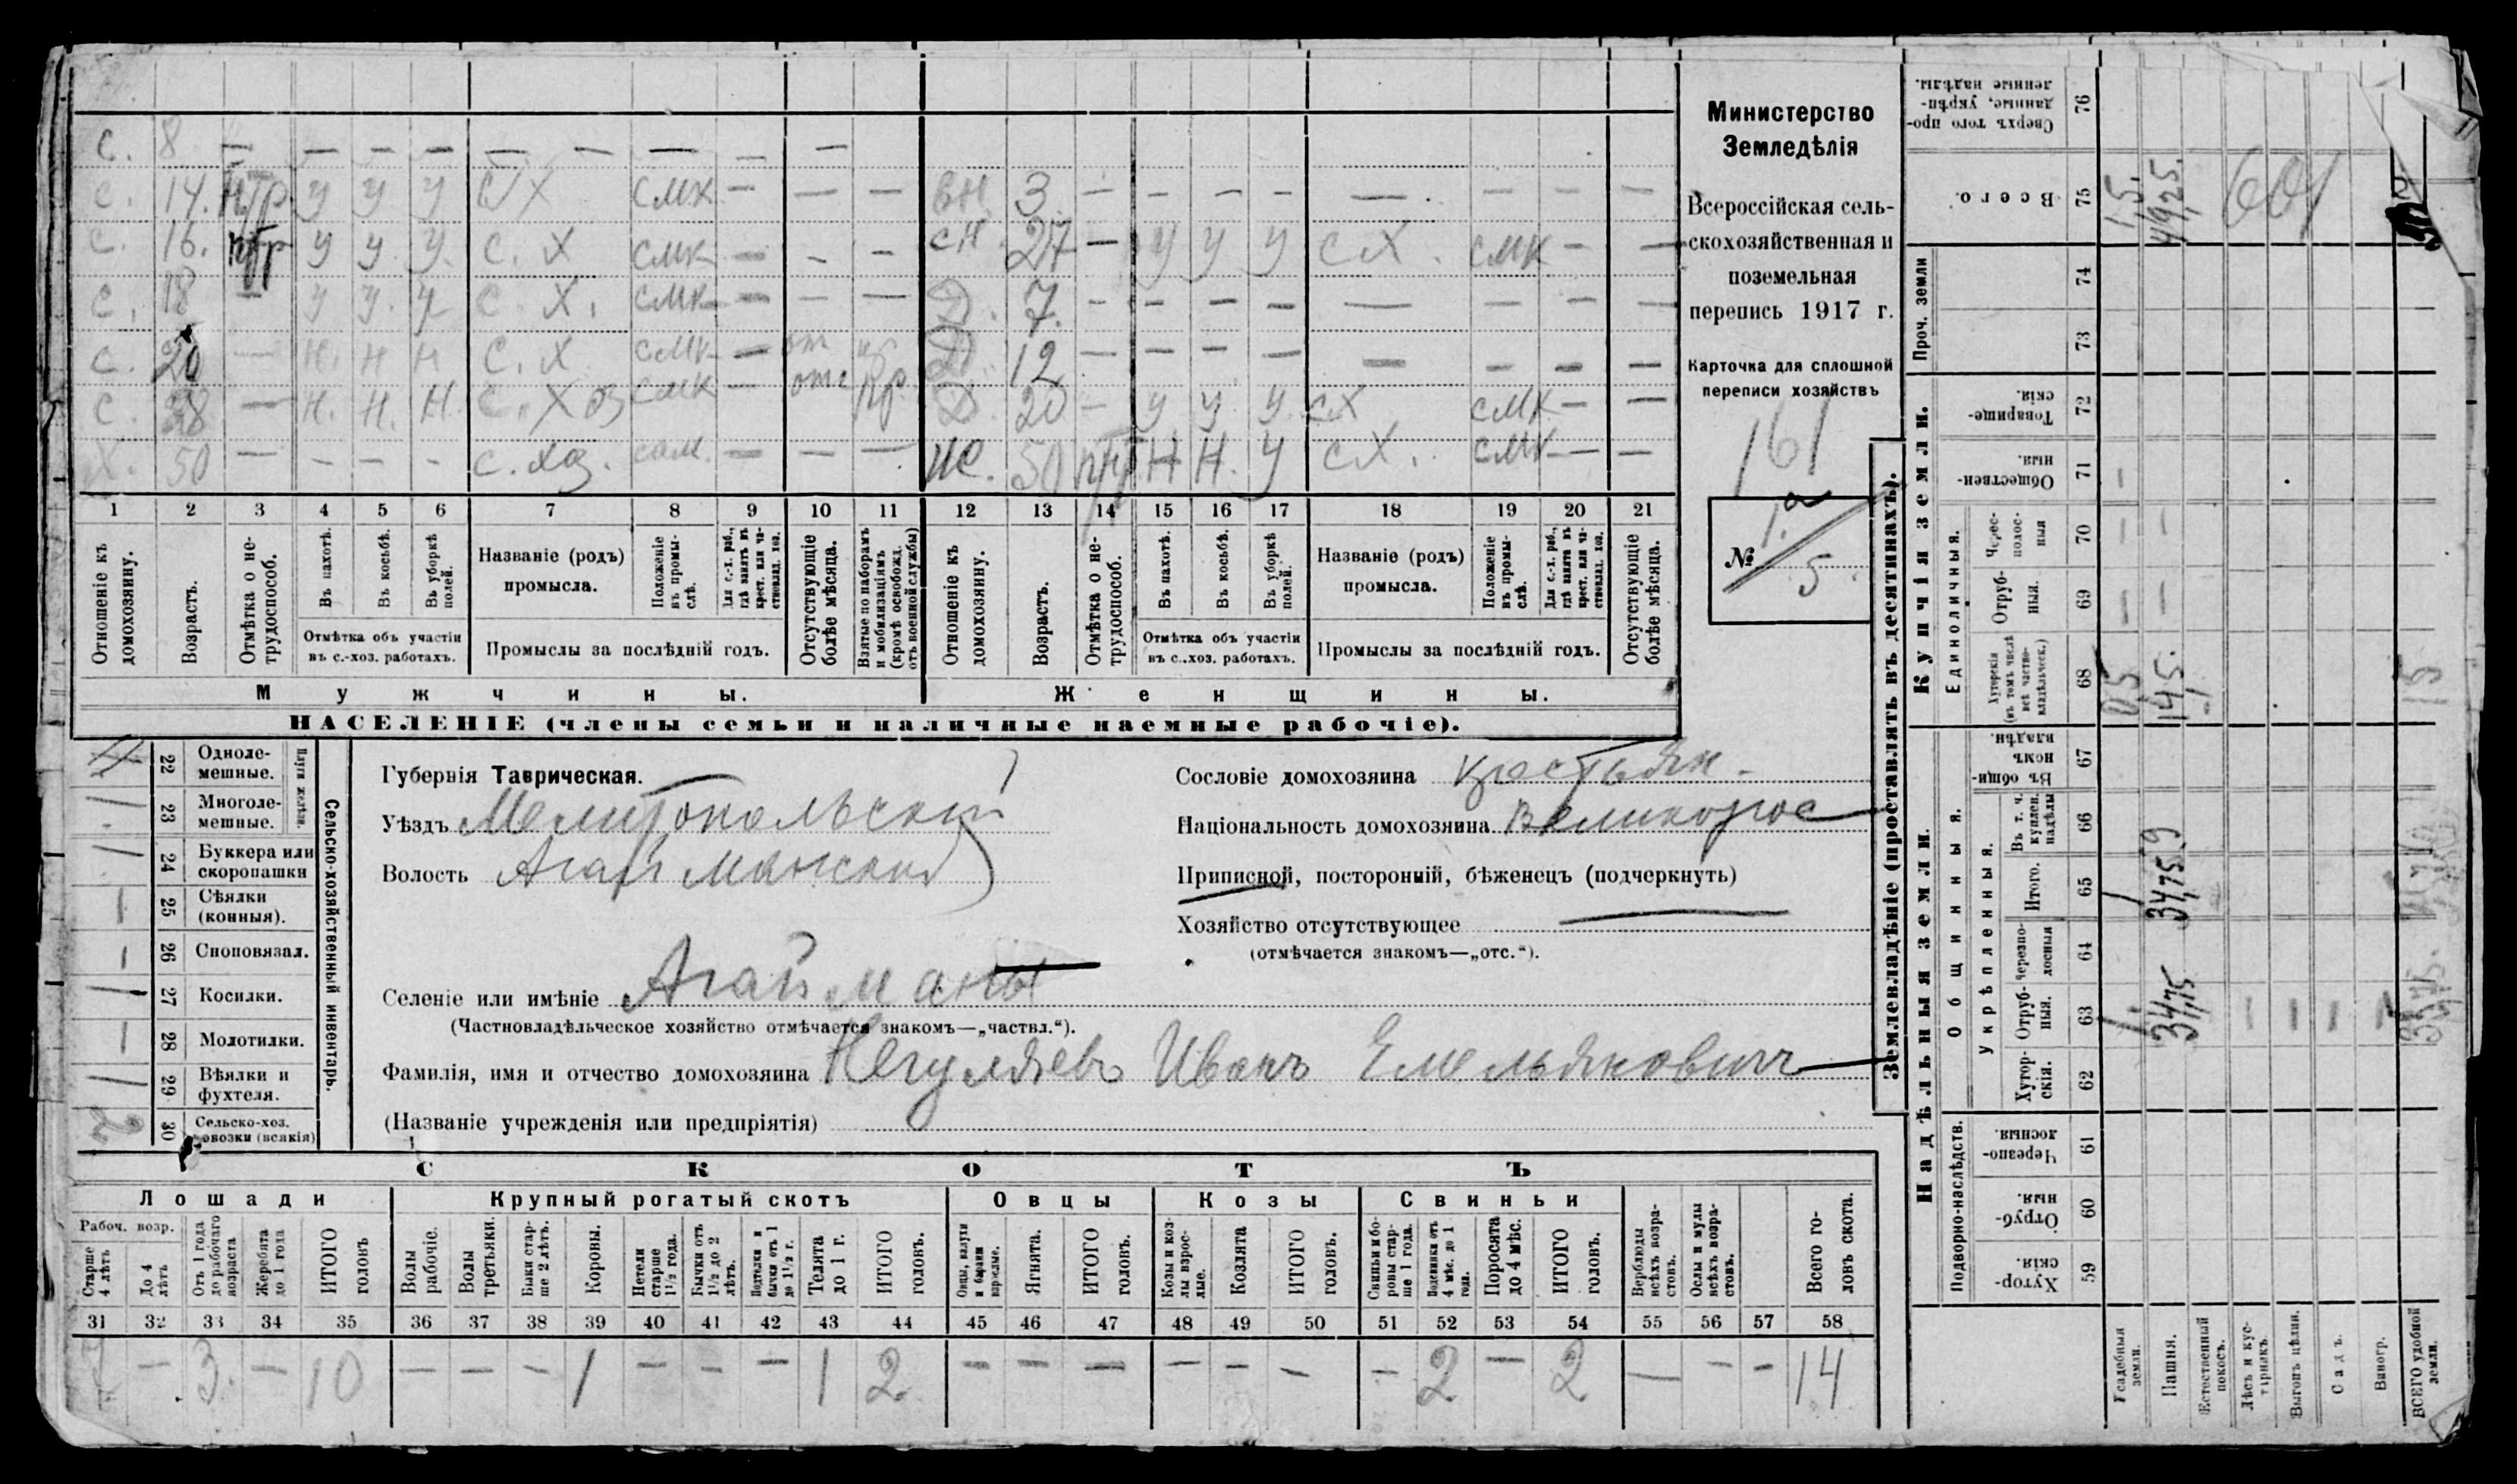 с. 8 — — — — — — — — —
с. 14. н/тр у у у с/х смк — — — вн 3 — — — — — — — —
с. 16. н/тр у у. у. с. х смк — — — сн. 27 — у у у сх. смк — —
с. 18 — у у. у с. х. смк — — — Д. 7. — — — — — — — —
с. 20 — н. н н с. х смк — от Д. 12 — — — — — — — —
с. 28 — н. н. н. с. хоз смк — отс Д. 20 — у у у. сх смк — —
х. 50 — — — — с. хоз. сам. — — — же. 50 н н. у сх. смк — —
1 2 3 4 5 6 7 8 9 10 11 12 13 14 15 16 17 18 19 20 21
Отношеніе къ домохозяину.
Возрастъ.
Отмѣтка о не-трудоспособ.
Въ пахотѣ.
Въ косьбѣ.
Въ уборкѣ полей.
Отмѣтка объ участіи въ с.-хоз. работахъ.
Названіе (родъ) промысла.
Положеніе въ промы-слѣ.
Для с.-х. раб., гдѣ занятъ въ крест. или ча-стновлад. хоз.
Промыслы за послѣдній годъ.
Отсутствующіе болѣе мѣсяца.
Взятые по наборамъ и мобилизаціямъ (кромѣ освобожд. отъ военной службы)
Отношеніе къ домохозяину.
Возрастъ.
Отмѣтка о не-трудоспособ.
Въ пахотѣ.
Въ косьбѣ.
Въ уборкѣ полей.
Отмѣтка объ участіи въ с.-хоз. работахъ.
Названіе (родъ) промысла.
Положеніе въ промы-слѣ.
Для с.-х. раб., гдѣ занятъ въ крест. или ча-стновлад. хоз.
Промыслы за послѣдній годъ.
Отсутствующіе болѣе мѣсяца.
Мужчины.
Женщины.
НАСЕЛЕНІЕ (члены семьи и наличные наемные рабочіе).
Министерство
Земледѣлія
Всероссійская сель-
скохозяйственная и
поземельная
перепись 1917 г.
Карточка для сплошной
переписи хозяйствъ
161
№
5
22 Одноле-мешные.
23 Многоле-мешные.
Плуги желѣзн.
24 Буккера или скоропашки
25 Сѣялки (конныя).
26 Сноповязал.
27 Косилки.
28 Молотилки.
29 Вѣялки и фухтеля.
30 Сельско-хоз. повозки (всякія) 2
Сельско-хозяйственный инвентарь.
Губернія Таврическая.
Уѣздъ Мелитопольскій
Волость Агайманской
Селеніе или имѣніе Агайманы
(Частновладѣльческое хозяйство отмѣчается знакомъ—„частвл.“).
Фамилія, имя и отчество домохозяина Негуляевъ Иванъ Емельянович
(Названіе учрежденія или предпріятія)
Сословіе домохозяина крестьян.
Національность домохозяина Великорос
Приписной, посторонній, бѣженецъ (подчеркнуть)
Хозяйство отсутствующее —
(отмѣчается знакомъ—„отс.“).
СКОТЪ
Лошади
Крупный рогатый скотъ
Овцы
Козы
Свиньи
Рабоч. возр.
Старше 4 лѣтъ
До 4 лѣтъ
Отъ 1 года до рабочаго возраста
Жеребята до 1 года
ИТОГО головъ
Волы рабочіе.
Волы третьяки.
Быки стар-ше 2 лѣтъ.
Коровы.
Нетели старше 1½ года.
Бычки отъ 1½ до 2 лѣтъ.
Подтелки и бычки отъ 1 до 1½ г.
Телята до 1 г.
ИТОГО головъ.
Овцы, валухи и бараны взрослые.
Ягнята.
ИТОГО головъ.
Козы и коз-лы взрос-лые.
Козлята
ИТОГО головъ.
Свиньи и бо-ровы стар-ше 1 года.
Подсвинки отъ 4 мѣс. до 1 года.
Поросята до 4 мѣс.
ИТОГО головъ.
Верблюды всѣхъ возра-стовъ.
Ослы и мулы всѣхъ возра-стовъ.
Всего го-ловъ скота.
31 32 33 34 35 36 37 38 39 40 41 42 43 44 45 46 47 48 49 50 51 52 53 54 55 56 57 58
7 — 3. — 10 — — — 1 — — — 1 2 — — — — — — — 2 — 2 — — — 14
Землевладѣніе (проставлять въ десятинахъ).
Купчія земли.
Надѣльныя земли.
Сверхъ того про-данные, укрѣп-ленные надѣлы. 76
Всего. 75
Проч. земли 74 73
Товарище-скія. 72
Обществен-ныя. 71
Единоличныя.
Черес-полос-ныя 70
Отруб-ныя. 69
Хуторскія (въ томъ числѣ всѣ частно-владѣльческ.) 68
Въ общин-номъ владѣн. 67
Общинныя.
Укрѣпленныя.
Въ т. ч. куплен. надѣлы 66
Итого. 65
Черезпо-лосныя 64
Отруб-ныя. 63
Хутор-скія. 62
Подворно-наслѣдств.
Черезпо-лосныя. 61
Отруб-ныя. 60
Хутор-скія 59
Усадебныя земли.
Пашня.
Естественный покосъ.
Лѣсъ и кус-тарникъ.
Выгонъ цѣлин.
Садъ.
Виногр.
ВСЕГО удобной земли.
1,5.
49,25.
601
0,5
14,5.
15
1.
34,75
1
34,75